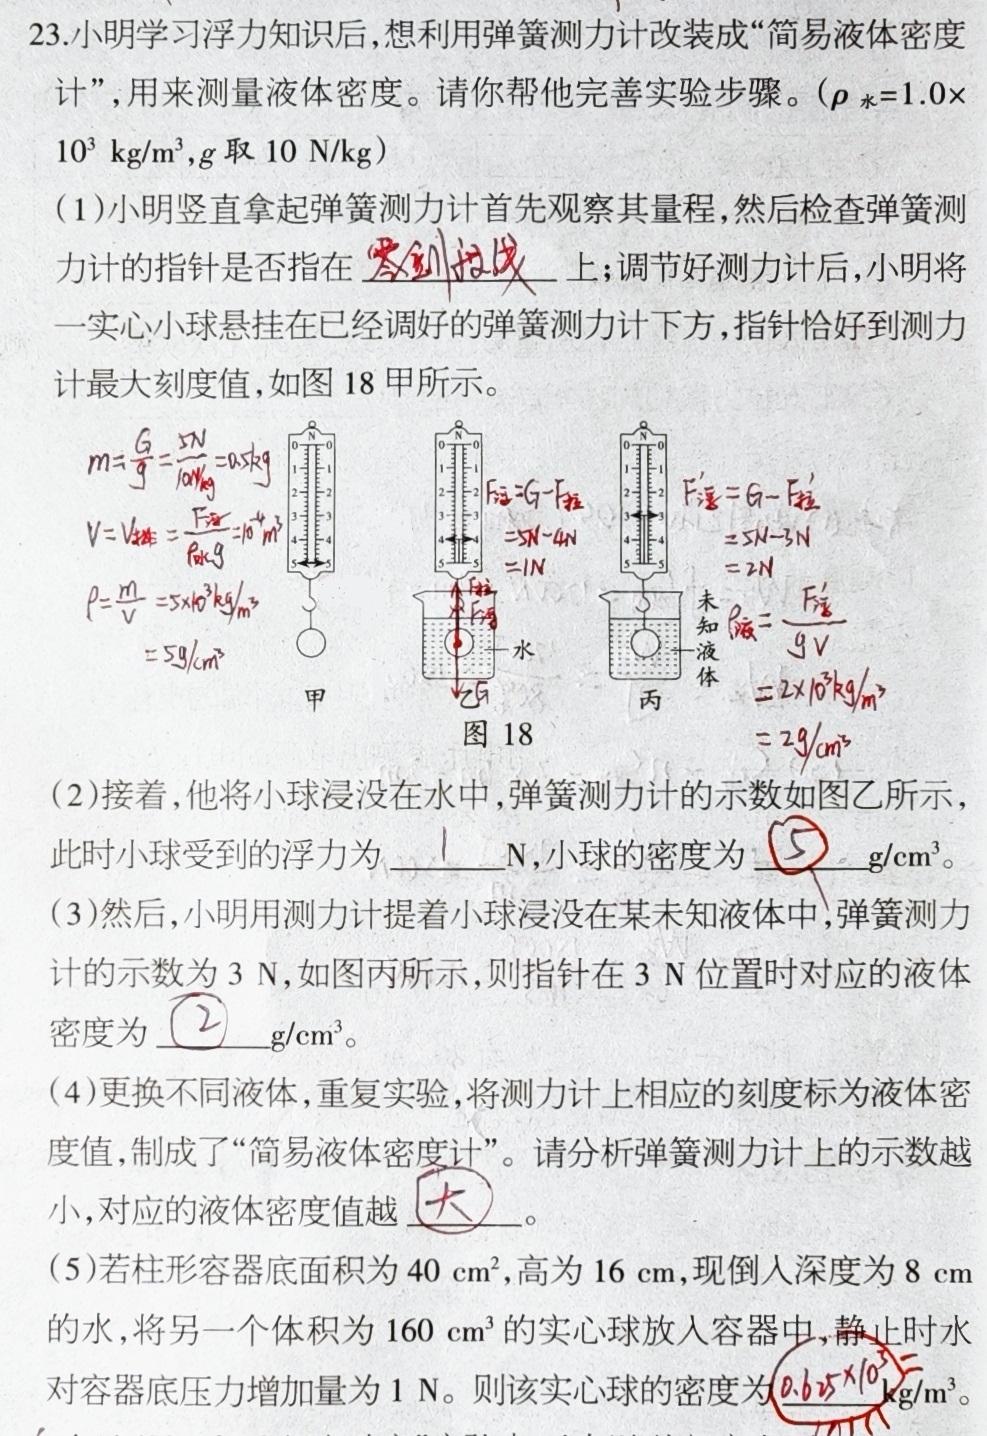 23.小明学习浮力知识后,想利用弹簧测力计改装成“简易液体密度
计”,用来测量液体密度。请你帮他完善实验步骤。(ρ水=1.0×
10³ kg/m³,g取10 N/kg)
(1)小明竖直拿起弹簧测力计首先观察其量程,然后检查弹簧测
力计的指针是否指在 零刻度线 上;调节好测力计后,小明将
一实心小球悬挂在已经调好的弹簧测力计下方,指针恰好到测力
计最大刻度值,如图18甲所示。
m=G/g=5N/10N/kg=0.5kg
V=V排=F浮/ρ水g=10⁻⁴m³
ρ=m/V=5×10³kg/m³
=5g/cm³
N
0 0
1 1
2 2
3 3
4 4
5 5
甲
N
0 0
1 1
2 2
3 3
4 4
5 5
F浮=G-F拉
=5N-4N
=1N
F拉
F浮
水
G
乙
N
0 0
1 1
2 2
3 3
4 4
5 5
未知液体
丙
F浮'=G-F拉'
=5N-3N
=2N
ρ液=F浮'/gV
=2×10³kg/m³
=2g/cm³
图18
(2)接着,他将小球浸没在水中,弹簧测力计的示数如图乙所示,
此时小球受到的浮力为 1 N,小球的密度为 5 g/cm³。
(3)然后,小明用测力计提着小球浸没在某未知液体中,弹簧测力
计的示数为3 N,如图丙所示,则指针在3 N位置时对应的液体
密度为 2 g/cm³。
(4)更换不同液体,重复实验,将测力计上相应的刻度标为液体密
度值,制成了“简易液体密度计”。请分析弹簧测力计上的示数越
小,对应的液体密度值越 大 。
(5)若柱形容器底面积为40 cm²,高为16 cm,现倒入深度为8 cm
的水,将另一个体积为160 cm³的实心球放入容器中,静止时水
对容器底压力增加量为1 N。则该实心球的密度为 0.625×10³ kg/m³。